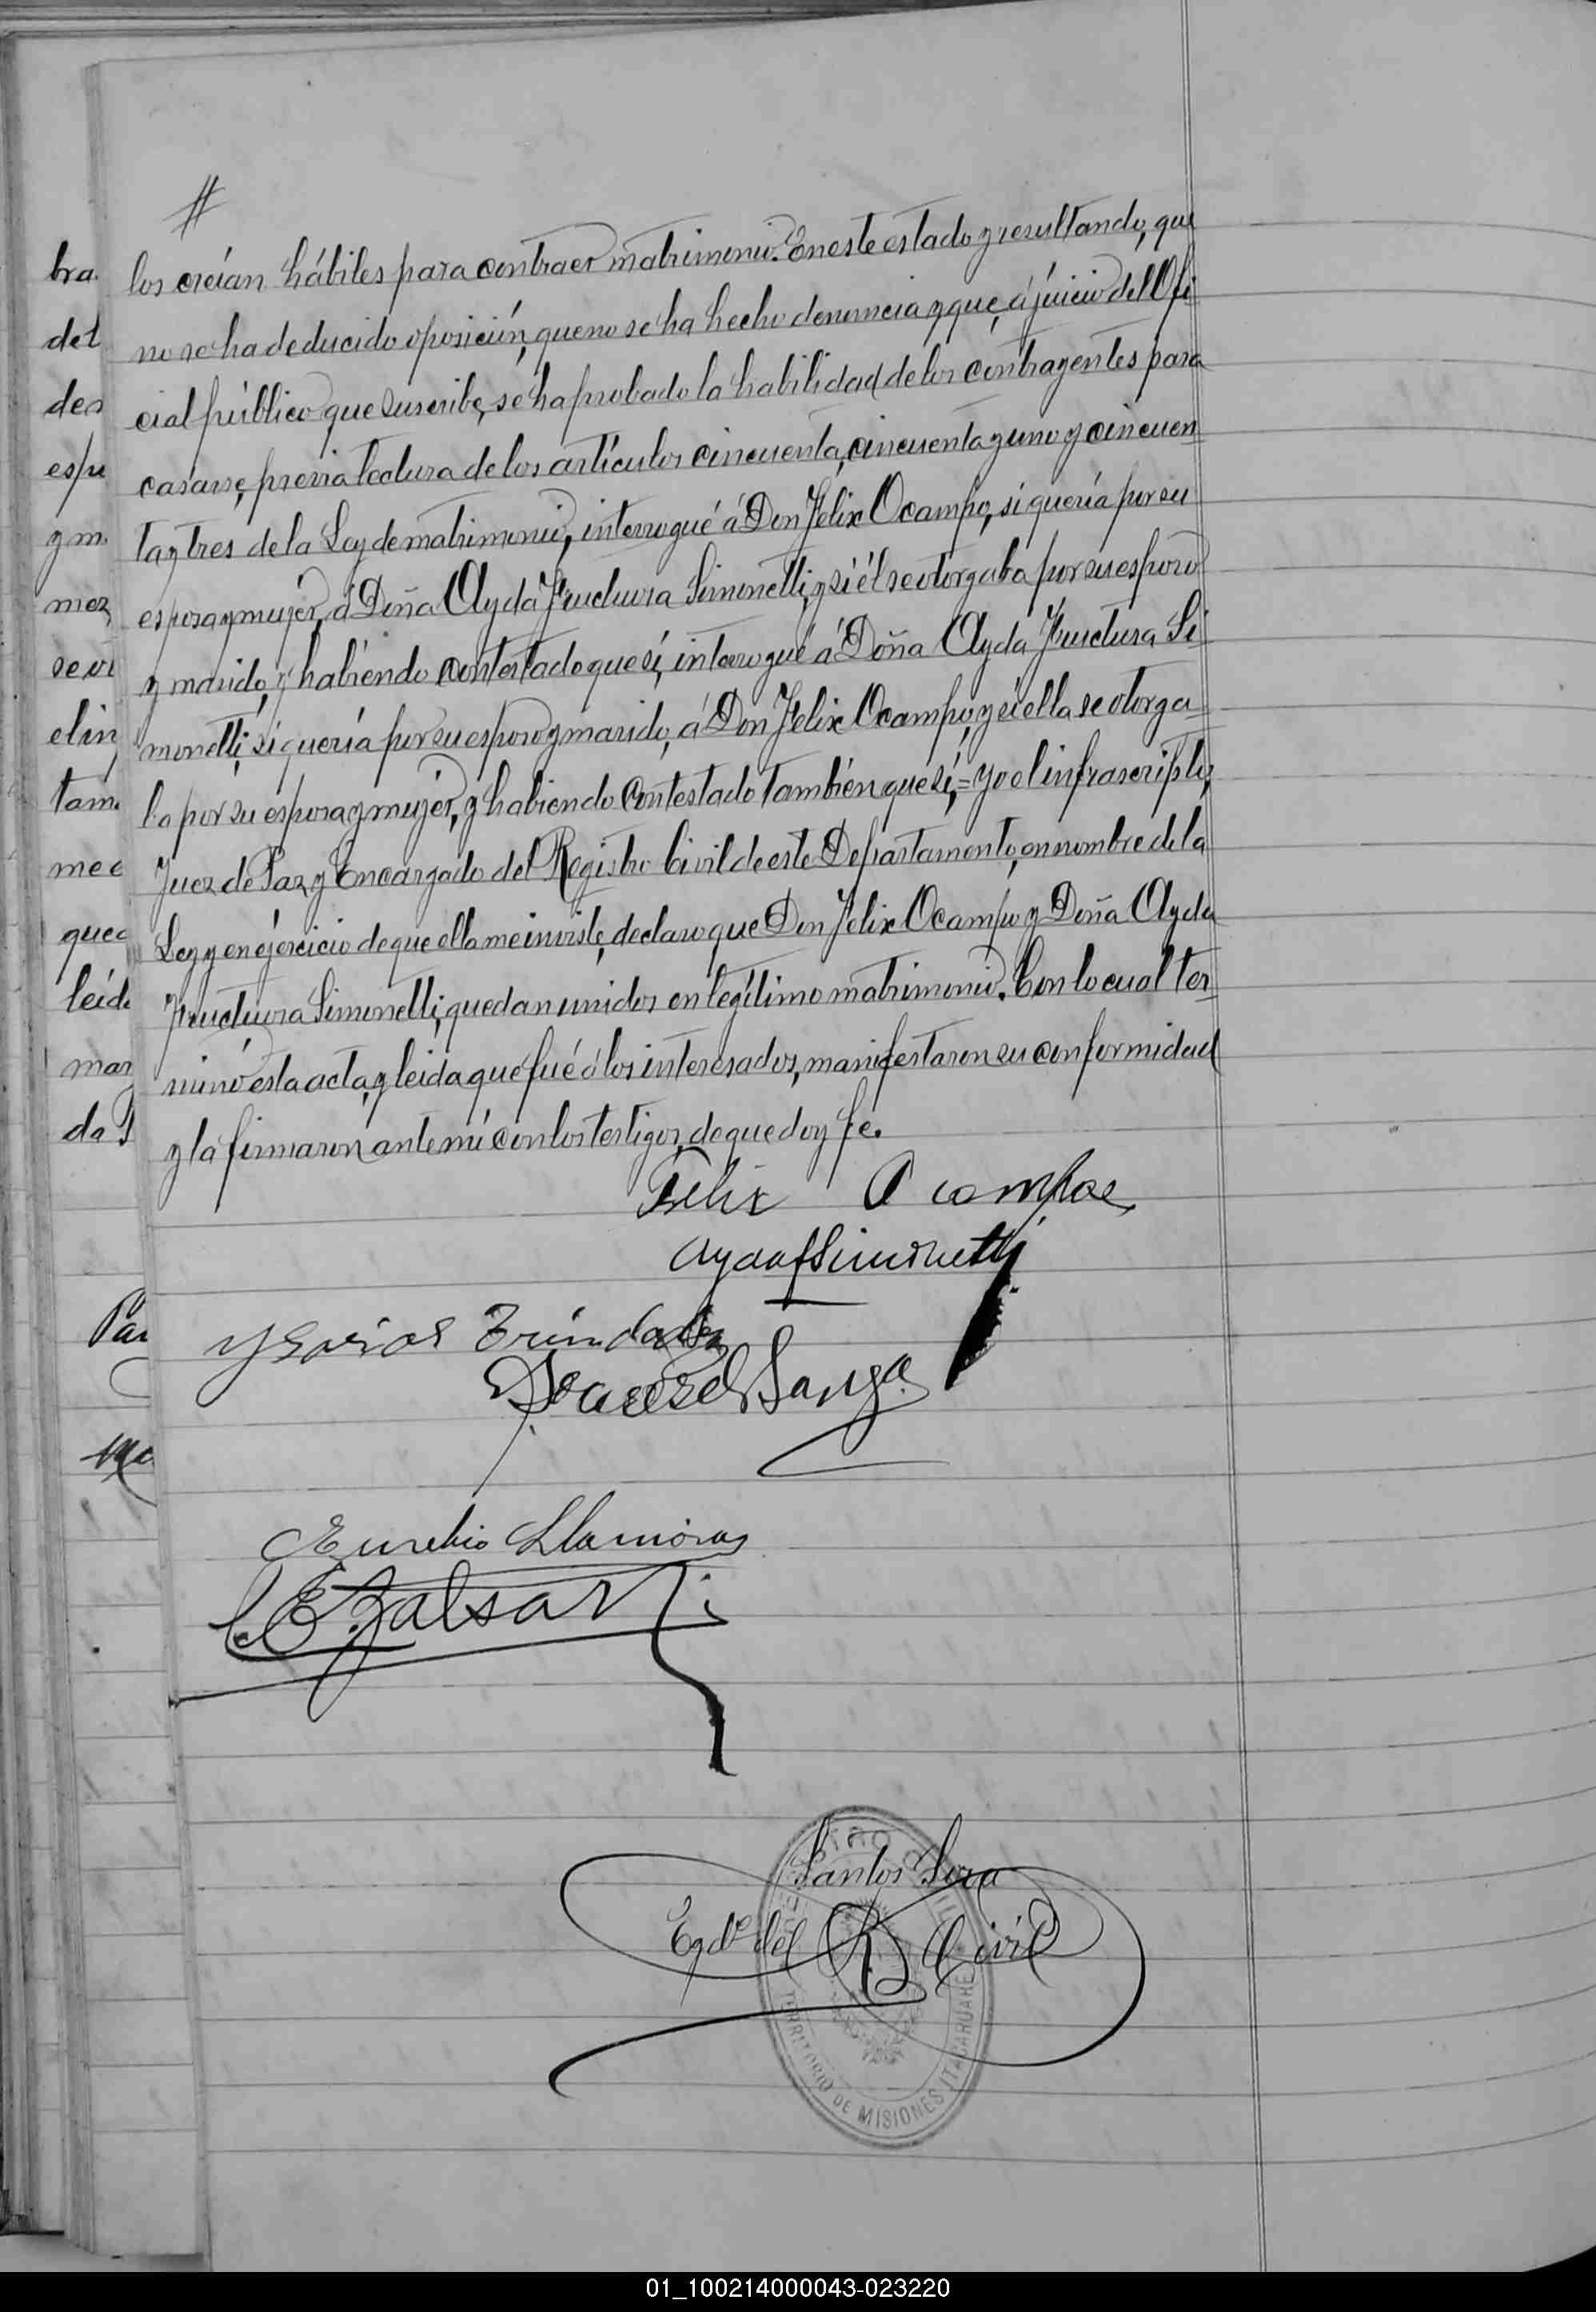 #
bra
los creían hábiles para contraer matrimonio. En este estado y resultando, que
det
no se ha deducido oposición, que no se ha hecho denuncia y que, á juicio del Ofi
des
cial público que suscribe, se ha probado la habilidad de los contrayentes para
espu
casarse, previa lectura de los artículos cincuenta, cincuenta y uno y cincuen
y m
ta y tres de la Ley de matrimonio, interrogué á Don Felix Ocampo, si quería por su
mez
esposa y mujer, á Doña Ayda Fructuosa Simonetti, y si él se otorgaba por su esposo
se ot
y marido, y habiendo contestado que sí, interrogué á Doña Ayda Fructuosa Si
el in
monetti, si quería por su esposo y marido, á Don Felix Ocampo, y si ella se otorga
tam
ba por su esposa y mujer, y habiendo contestado también que sí,= yo el infrascripto,
me e
Juez de Paz y Encargado del Registro Civil de este Departamento, en nombre de la
quec
Ley y en ejercicio de que ella me inviste, declaro que Don Felix Ocampo y Doña Ayda
leíd
Fructuosa Simonetti, quedan unidos en legítimo matrimonio. Con lo cual ter
mar
minó esta acta, y leida que fué á los interesados, manifestaron su conformidad
da
y la firmaron ante mí con los testigos, de que doy fe.
Felix Ocampos
Ayda F Simonetti
Par
Trindade
Eusebio Llamosas
Santos Sosa
Egdo del R Civil
TERRITORIO DE MISIONES ITACARUARE
01_100214000043-023220